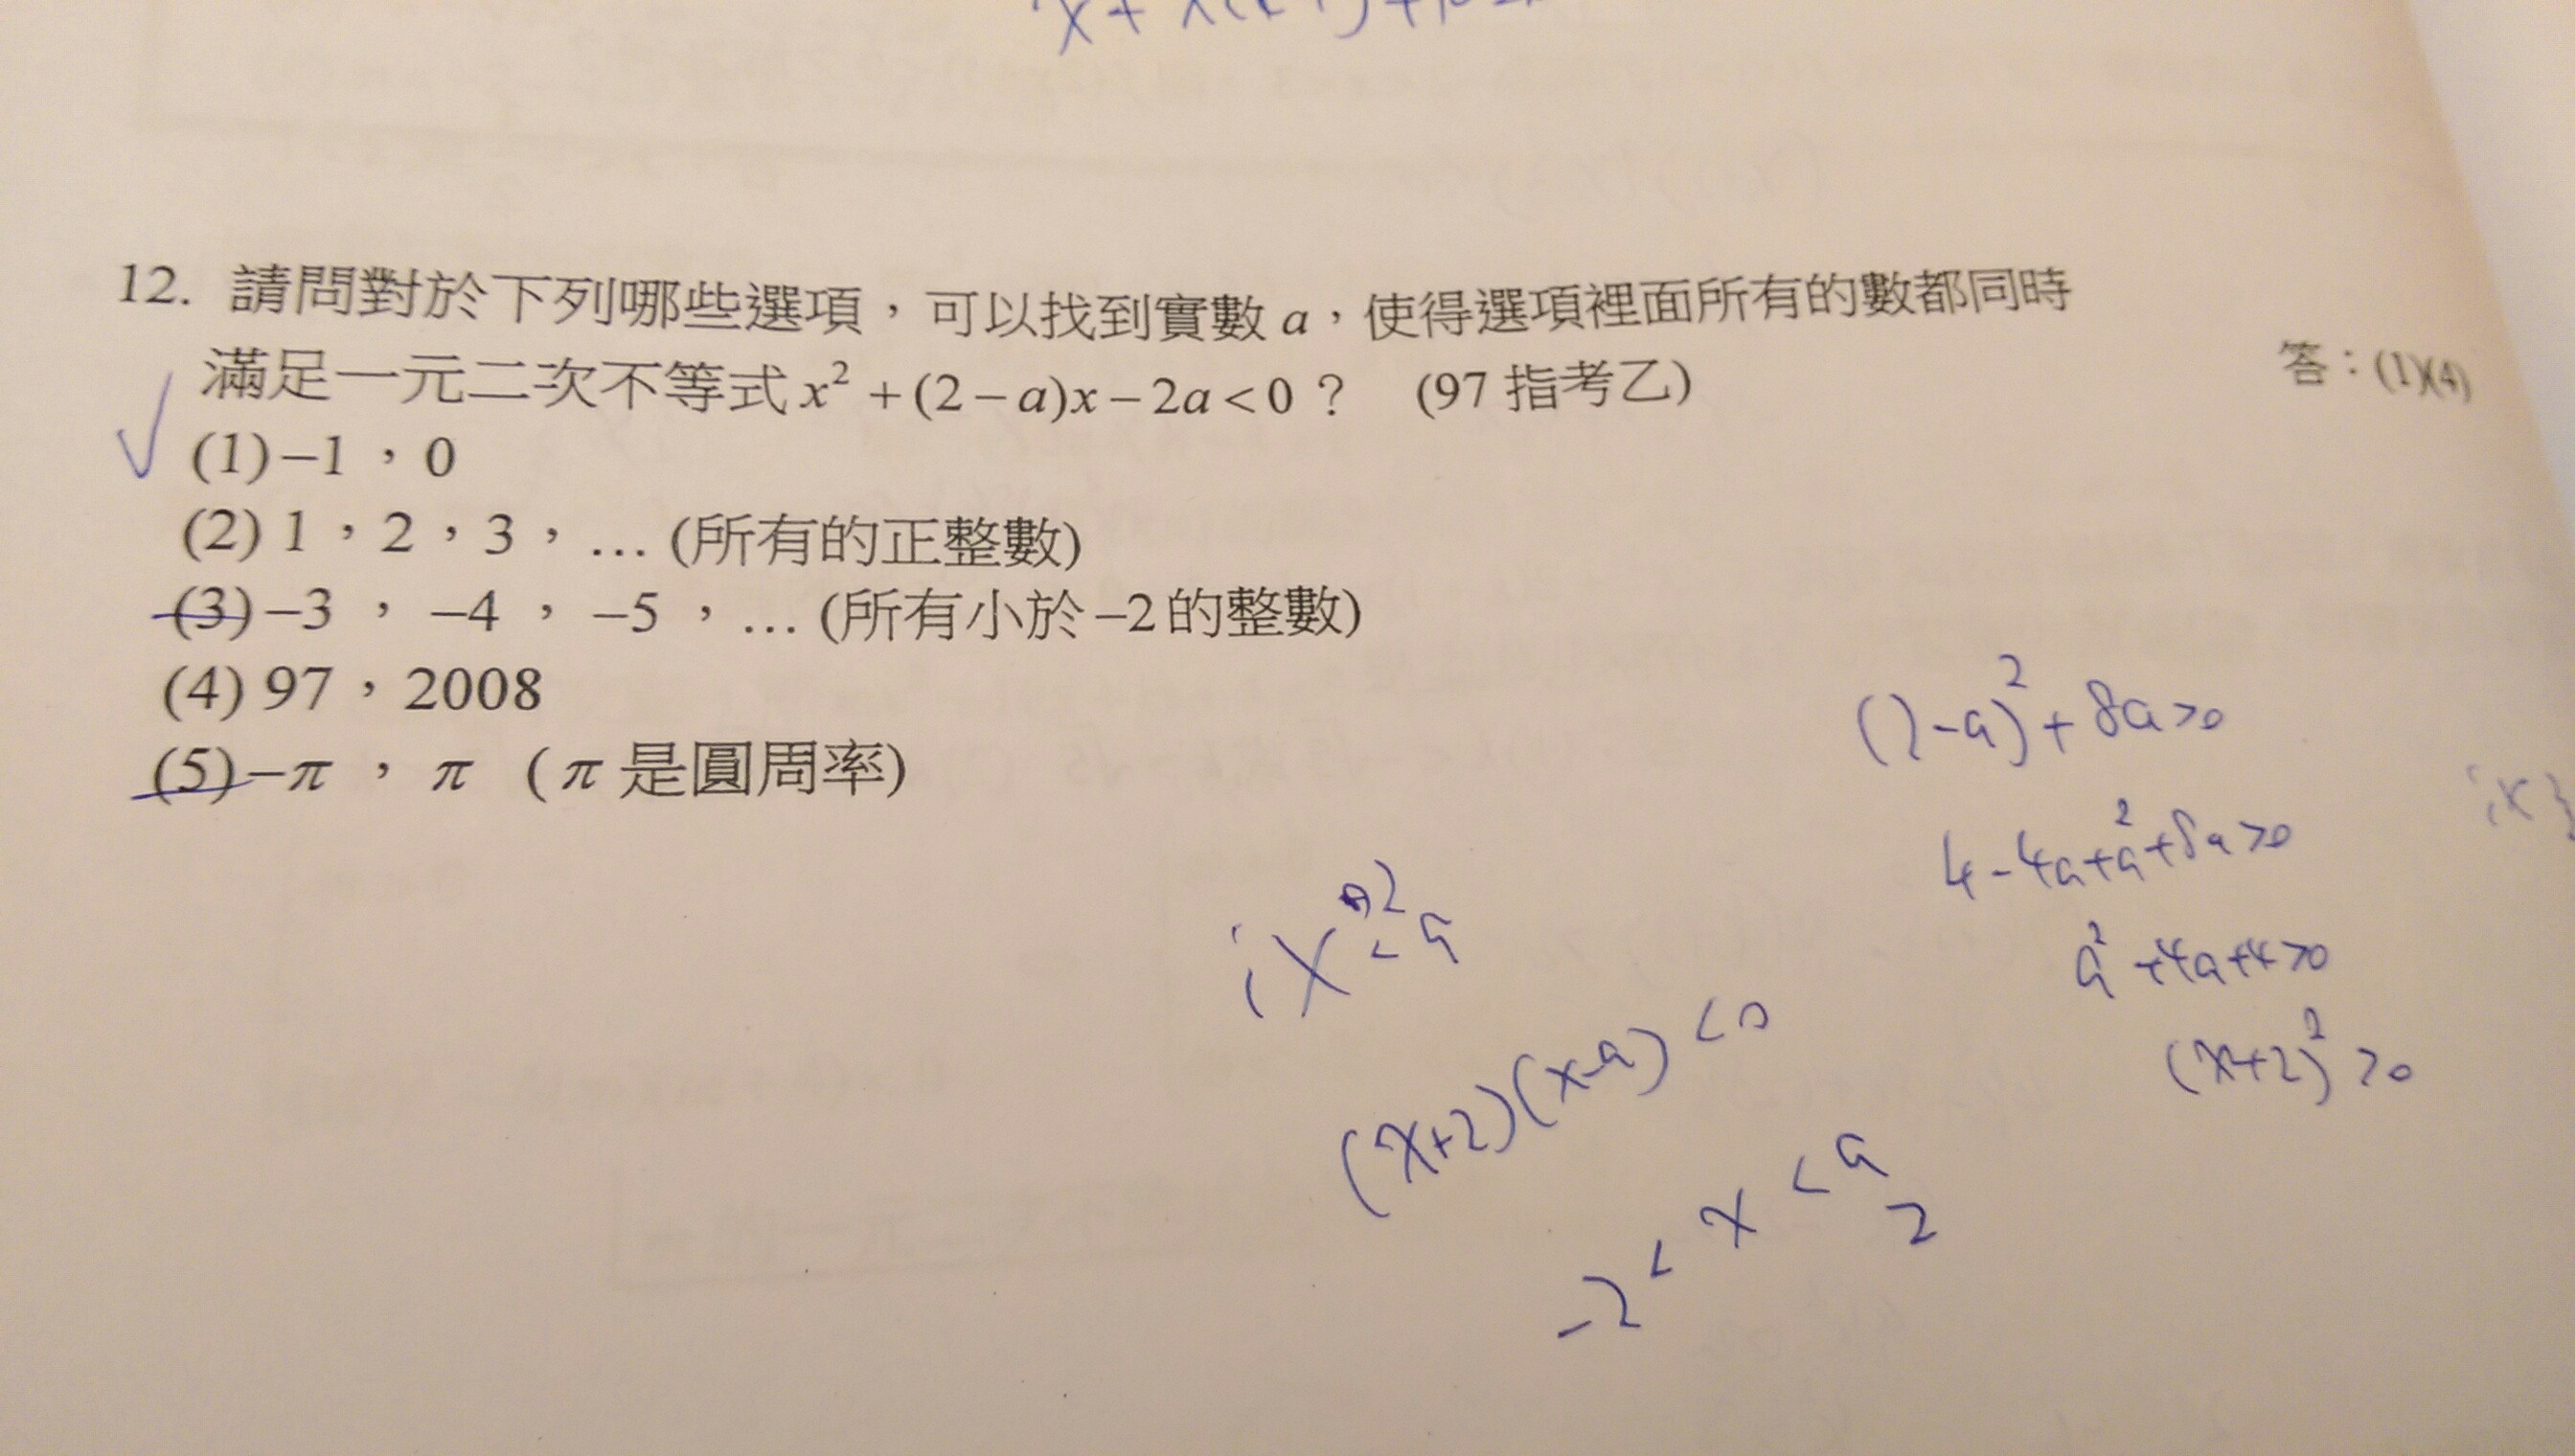 12. 請問對於下列哪些選項，可以找到實數 a，使得選項裡面所有的數都同時
滿足一元二次不等式 x² + (2 − a)x − 2a < 0 ？ (97 指考乙)
答：(1)(4)
(1) −1 ， 0
(2) 1 ， 2 ， 3 ， … (所有的正整數)
(3) −3 ， −4 ， −5 ， … (所有小於 −2 的整數)
(4) 97 ， 2008
(5) −π ， π ( π 是圓周率)
(2-a)² + 8a >0
4-4a+a²+8a >0
a²+4a+4>0
(x+2)² >0
(x+2)(x-a) <0
-2 < x < a
2